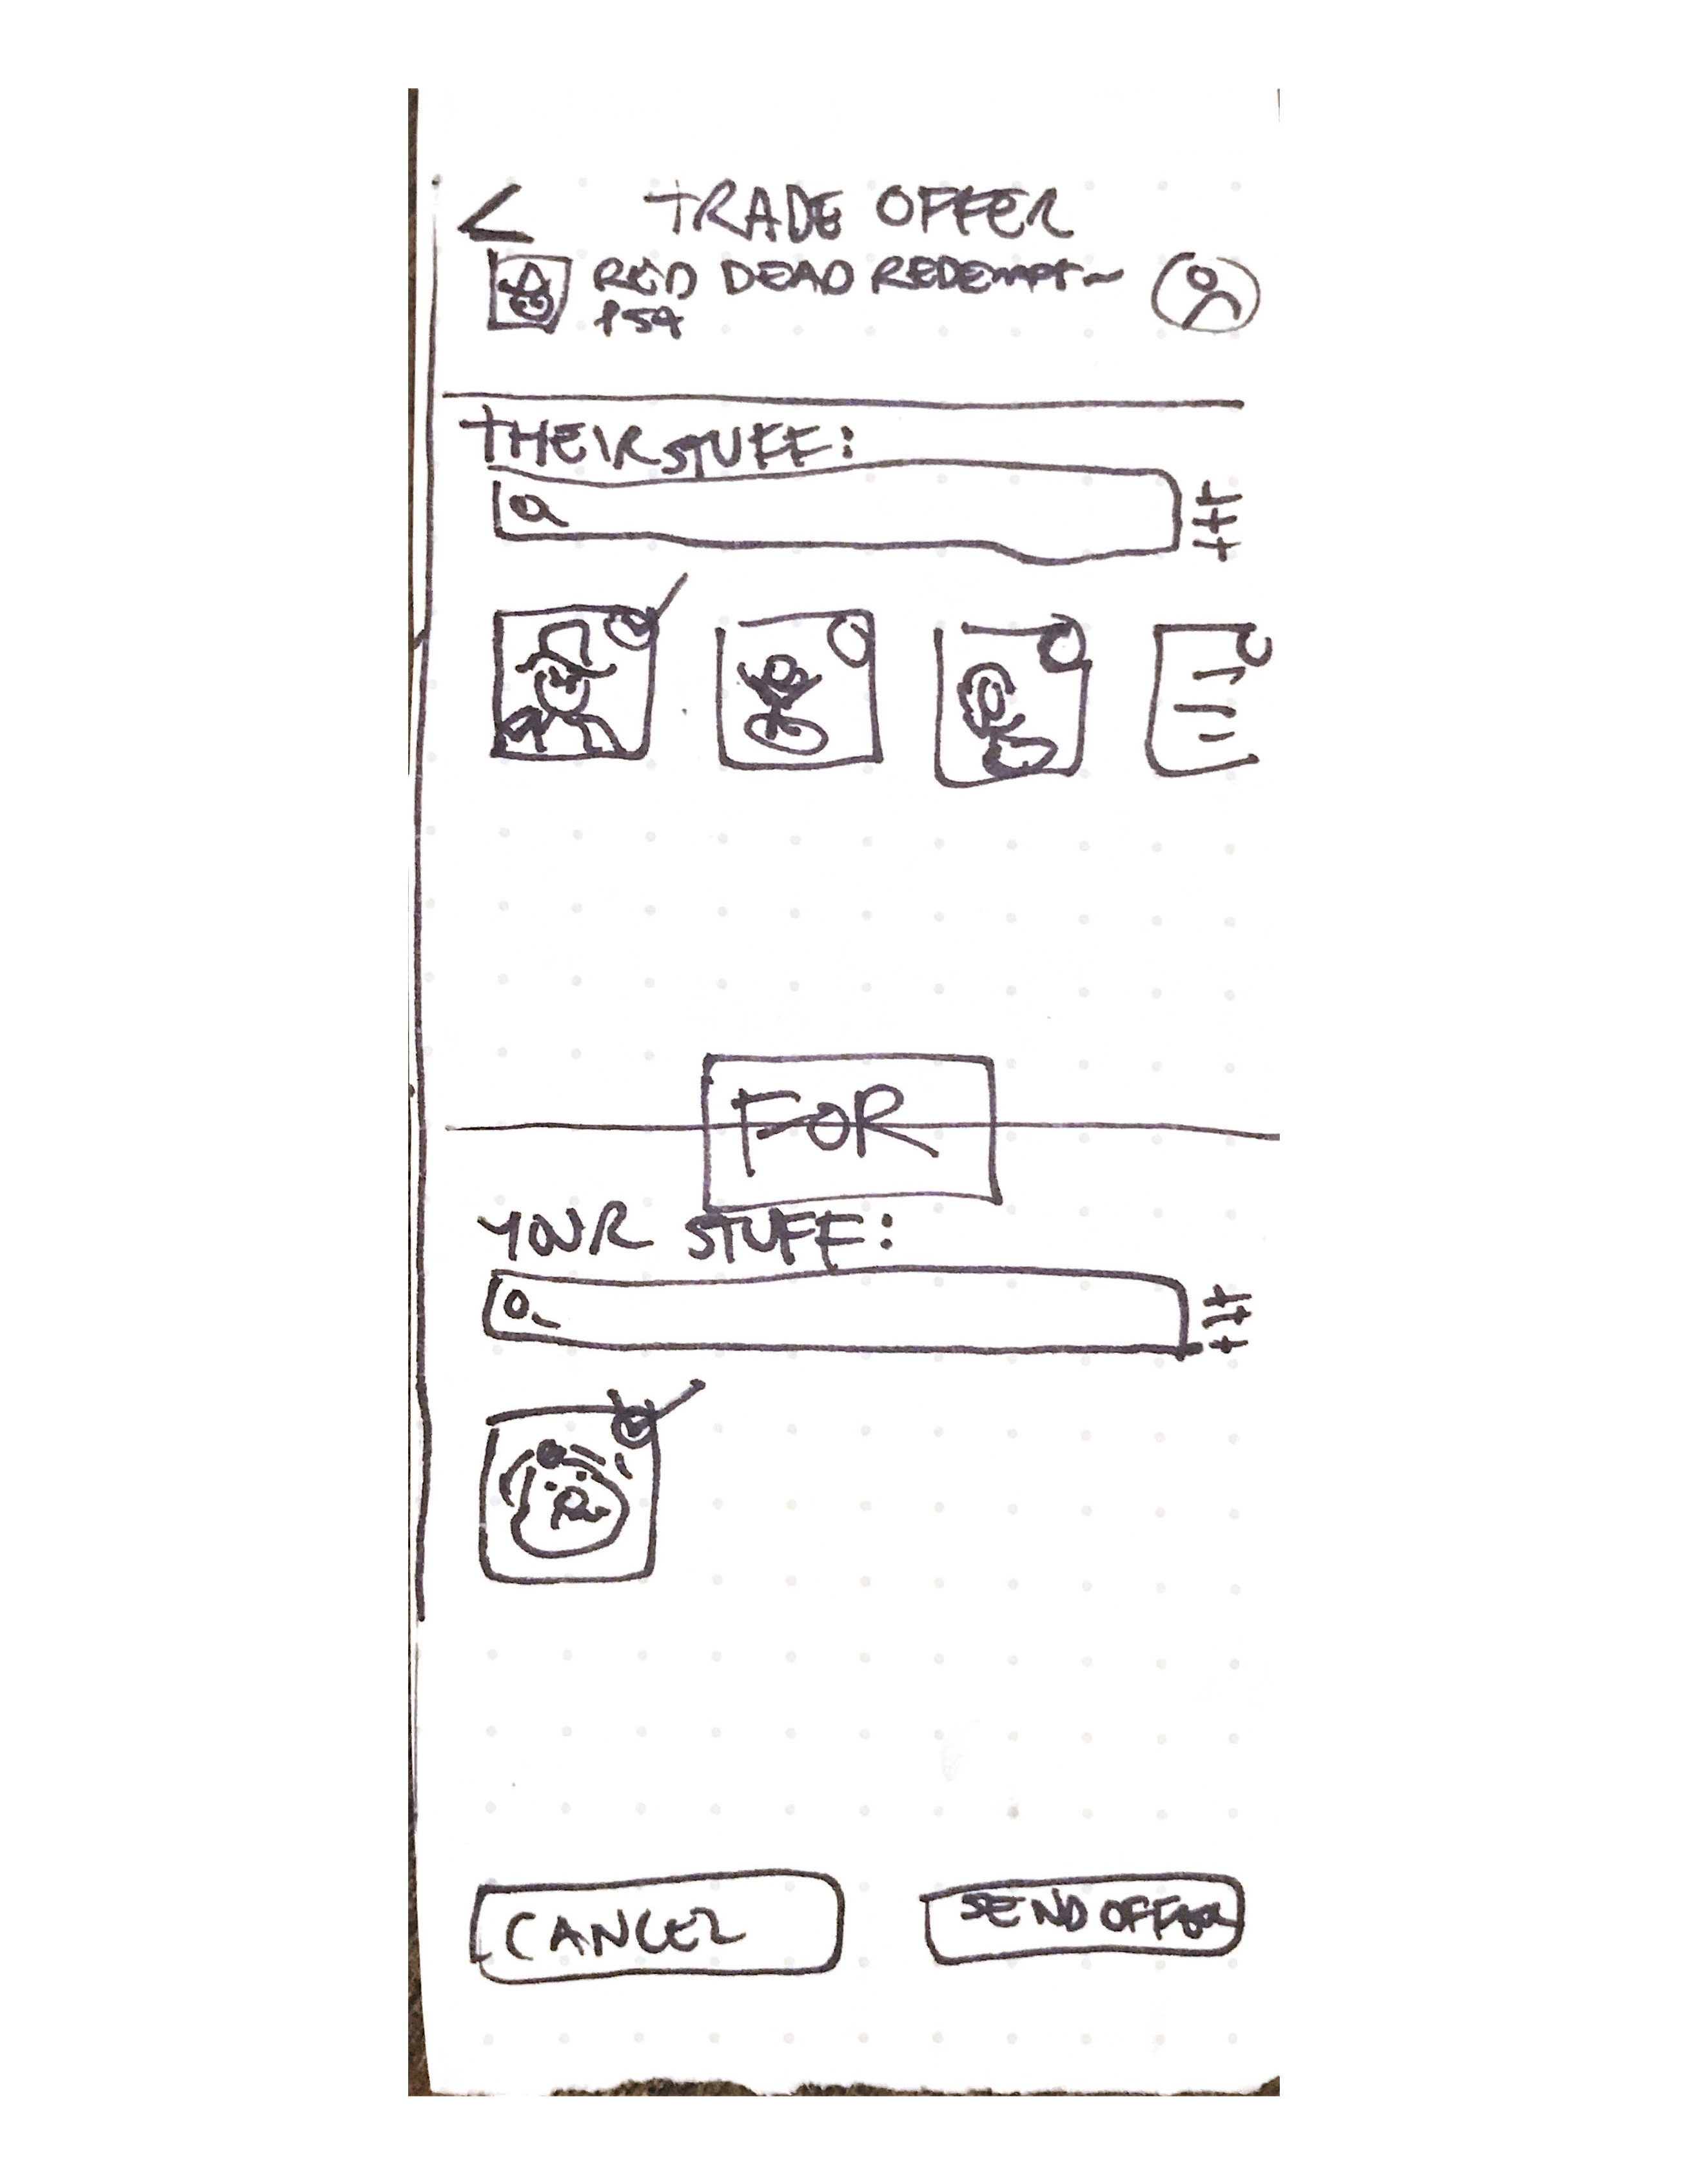 TRADE OFFER
RED DEAD REDEMPT~
PS4
THEIR STUFF:
FOR
YOUR STUFF:
CANCEL
SEND OFFER